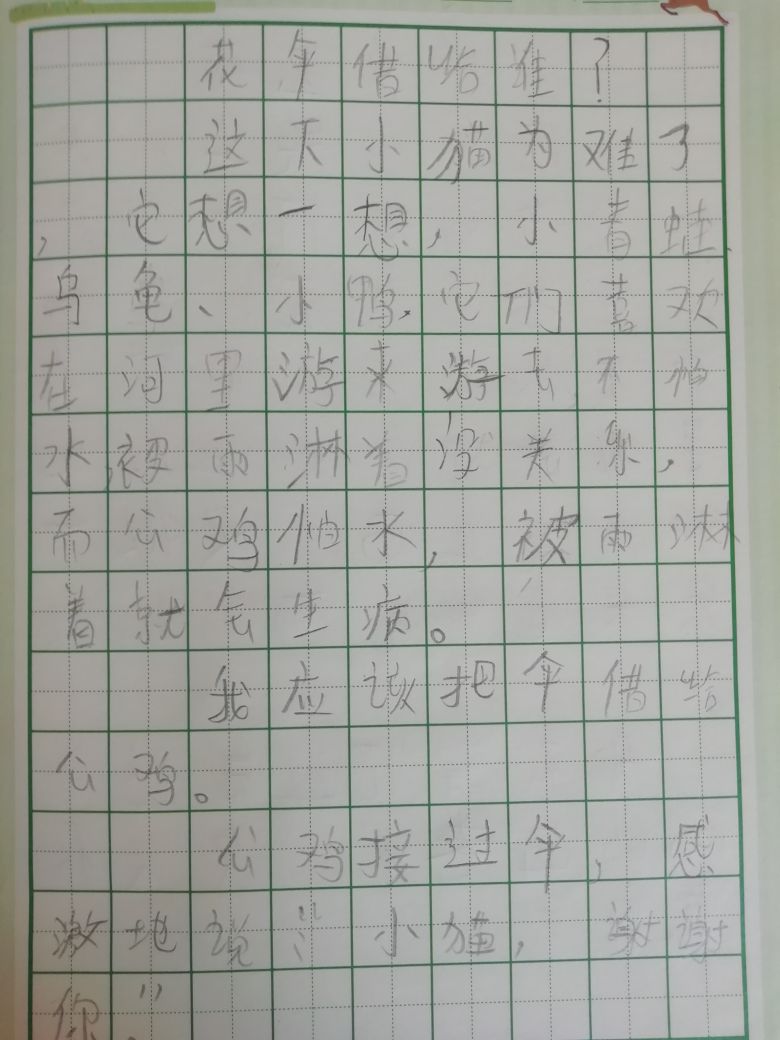 花伞借给谁？
这下小猫为难了
，它想一想，小青蛙、
乌龟、小鸭，它们喜欢
在河里游来游去不怕
水，被雨淋着没关系，
而公鸡怕水，被雨淋
着就会生病。
我应该把伞借给
公鸡。
公鸡接过伞，感
激地说：“小猫，谢谢
你”